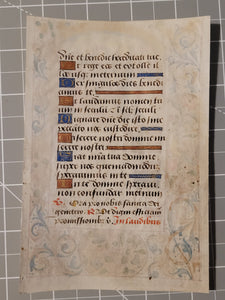 Dne et benedic hereditati tue
Et rege eos et extolle il
los usq in eternum
Per singulos dies bened
cimus te
Et laudamus nomen tu
um in seculum
Dignare dne die isto sine
peccato nos custodire
Miserere nri
miserere nri
Fiat mia tua domine
super nos
speravimus in te
In te domine speravi
non confundar in eternum
Ora pro nobis sancta dei
genetrix Ut digni efficiam
promissionib In laudibus